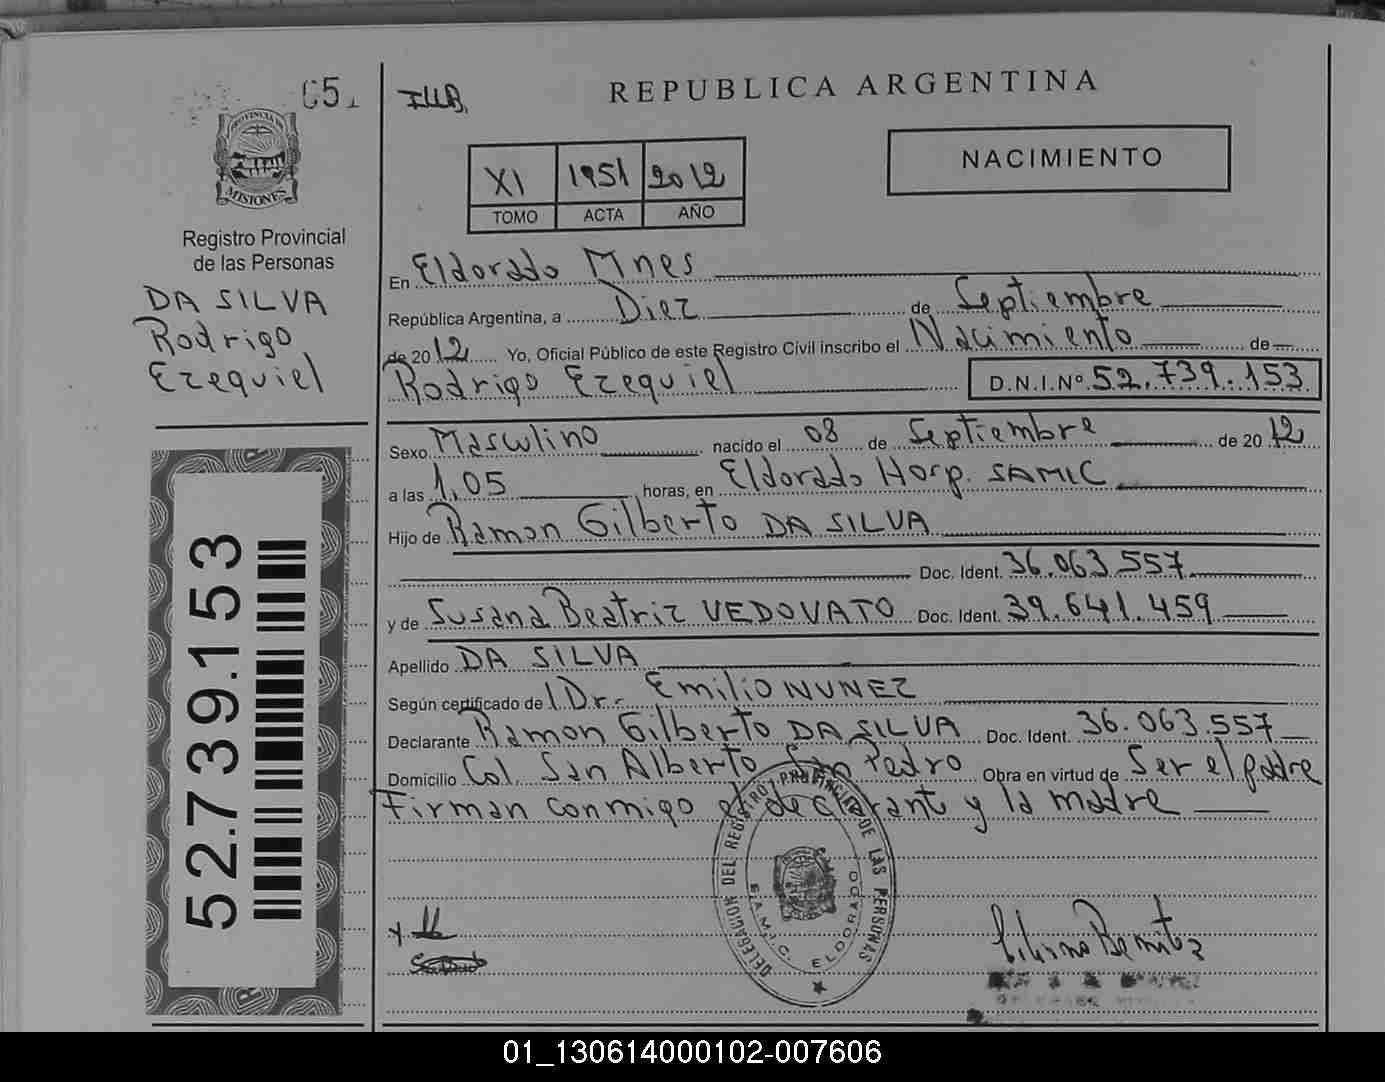 05
PROVINCIA DE
MISIONES
Registro Provincial
de las Personas
DA SILVA
Rodrigo
Ezequiel
52.739.153
REPUBLICA ARGENTINA
NACIMIENTO
XI 1951 2012
TOMO ACTA AÑO
En Eldorado Mnes
República Argentina, a Diez de Septiembre
de 2012 Yo, Oficial Público de este Registro Civil inscribo el Nacimiento de
Rodrigo Ezequiel D.N.I.Nº 52.739.153
Sexo Masculino nacido el 08 de Septiembre de 2012
a las 1.05 horas, en Eldorado Hosp. SAMIC
Hijo de Ramon Gilberto DA SILVA
Doc. Ident. 36.063.557
y de Susana Beatriz VEDOVATO Doc. Ident. 39.641.459
Apellido DA SILVA
Según certificado de Dr. Emilio NUNEZ
Declarante Ramon Gilberto DA SILVA Doc. Ident. 36.063.557
Domicilio Col. San Alberto San Pedro Obra en virtud de Ser el padre
Firman conmigo el declarant y la madre
DELEGACION DEL REGISTRO PROVINCIAL DE LAS PERSONAS
S.A.M.I.C. ELDORADO
Benitez
01_130614000102-007606